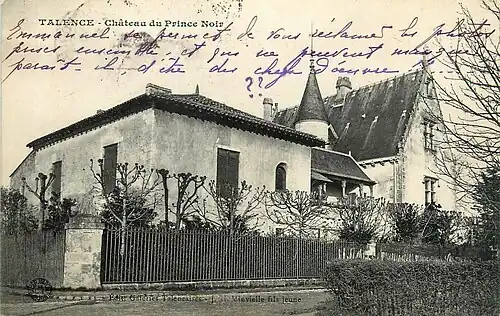 TALENCE - Château du Prince Noir
Emmanuel se permet de vous réclamer les photos
prises ensemble et qui ne peuvent
paraît-il d'être des chefs d'œuvre
??
Edit Galeries Talençaises - J. H. Vinvielle fils jeune